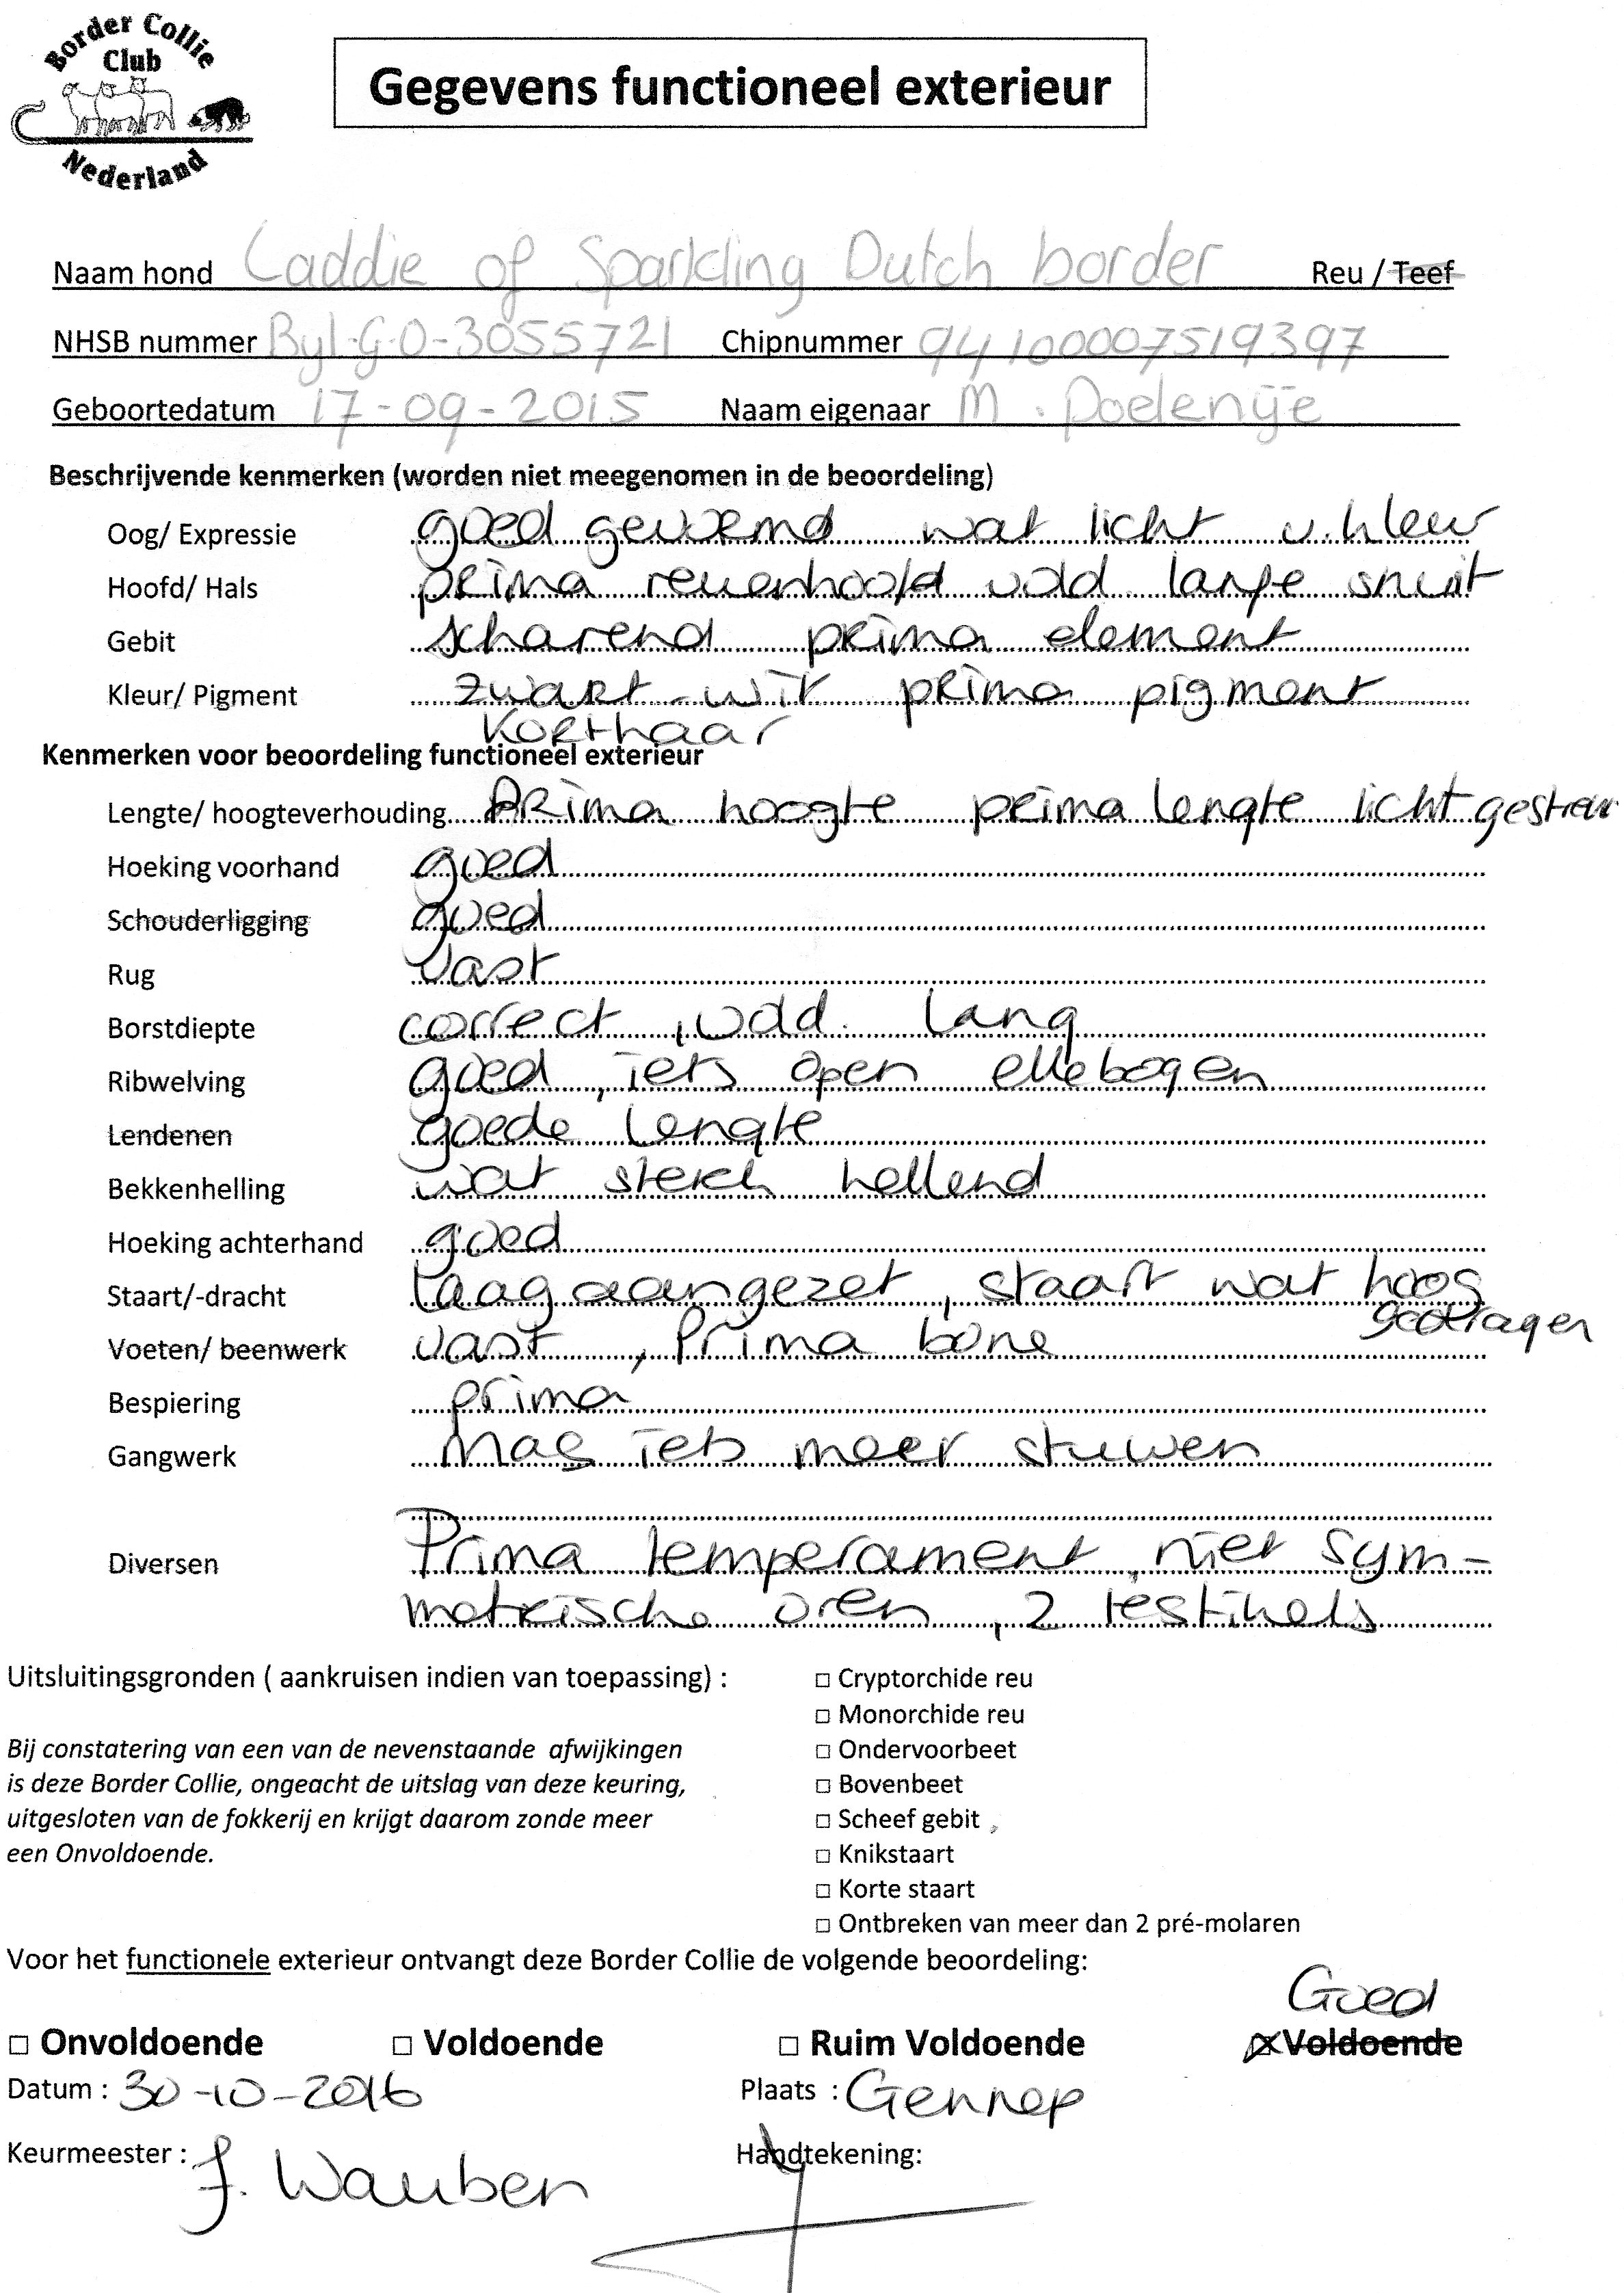 Border Collie
Club
Nederland
Gegevens functioneel exterieur
Naam hond Caddie of Sparkling Dutch border Reu / Teef
NHSB nummer Byl-G-0-3055721 Chipnummer 94100007519397
Geboortedatum 17-09-2015 Naam eigenaar M. Doelenije
Beschrijvende kenmerken (worden niet meegenomen in de beoordeling)
Oog/ Expressie goed gevormd wat licht v. kleur
Hoofd/ Hals prima reuenhoofd vold lange snuit
Gebit scharend prima element
Kleur/ Pigment zwart-wit prima pigment
Korthaar
Kenmerken voor beoordeling functioneel exterieur
Lengte/ hoogteverhouding Prima hoogte prima lengte licht
Hoeking voorhand goed
Schouderligging goed
Rug Vast
Borstdiepte correct, vold. lang
Ribwelving goed, iets open ellebogen
Lendenen goede lengte
Bekkenhelling wat sterk hellend
Hoeking achterhand goed
Staart/-dracht laag aangezet, staart wat hoog
gedragen
Voeten/ beenwerk vast, Prima bone
Bespiering prima
Gangwerk Mag iets meer stuwen
Diversen Prima temperament, niet sym-
metrische oren, 2 testikels
Uitsluitingsgronden ( aankruisen indien van toepassing) : □ Cryptorchide reu
□ Monorchide reu
Bij constatering van een van de nevenstaande afwijkingen □ Ondervoorbeet
is deze Border Collie, ongeacht de uitslag van deze keuring, □ Bovenbeet
uitgesloten van de fokkerij en krijgt daarom zonde meer □ Scheef gebit
een Onvoldoende. □ Knikstaart
□ Korte staart
□ Ontbreken van meer dan 2 pré-molaren
Voor het functionele exterieur ontvangt deze Border Collie de volgende beoordeling:
Goed
□ Onvoldoende □ Voldoende □ Ruim Voldoende ☒ Voldoende
Datum : 30-10-2016 Plaats : Gennep
Keurmeester : J. Wauben Handtekening: